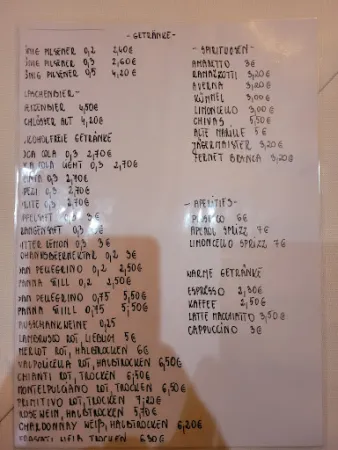 -GETRÄNKE-
PILSENER 0,2 2,40€
PILSENER 0,3 2,60€
PILSENER 0,5 4,20€
-FLASCHENBIER-
WEIZENBIER 4,50€
SCHLÖSSER ALT 4,20€
ALKOHOLFREIE GETRÄNKE
COCA COLA 0,3 2,70€
COCA COLA LIGHT 0,3 2,70€
FANTA 0,3 2,70€
0,3 2,70€
SPRITE 0,3 2,70€
APFELSAFT 0,3 3€
ORANGENSAFT 0,3 3€
BITTER LEMON 0,3 3€
JOHANNISBEERNEKTAR 0,2 3€
SAN PELLEGRINO 0,2 2,50€
PANNA STILL 0,2 2,50€
SAN PELLEGRINO 0,75 5,50€
PANNA STILL 0,75 5,50€
AUSSCHANKWEINE 0,25
LAMBRUSCO ROT, LIEBLICH 5€
MERLOT ROT, HALBTROCKEN 6€
VALPOLICELLA ROT, HALBTROCKEN 6,50€
CHIANTI ROT, TROCKEN 6,50€
MONTEPULCIANO ROT, TROCKEN 6,50€
PRIMITIVO ROT, TROCKEN 7,20€
ROSEWEIN, HALBTROCKEN 5,70€
CHARDONNAY WEIß, HALBTROCKEN 6,20€
TROCKEN 6,90€
-SPIRITUOSEN-
AMARETTO 3€
RAMAZZOTTI 3,20€
AVERNA 3,20€
KÜMMEL 3,00€
LIMONCELLO 3,00€
CHIVAS 5,50€
ALTE MARILLE 5€
JÄGERMEISTER 3,20€
FERNET BRANCA 3,20€
-APERITIFS-
PROSECCO 6€
APEROL SPRIZZ 7€
LIMONCELLO SPRIZZ 7€
WARME GETRÄNKE
ESPRESSO 2,30€
KAFFEE 2,50€
LATTE MACCHIATO 3,50€
CAPPUCCINO 3€